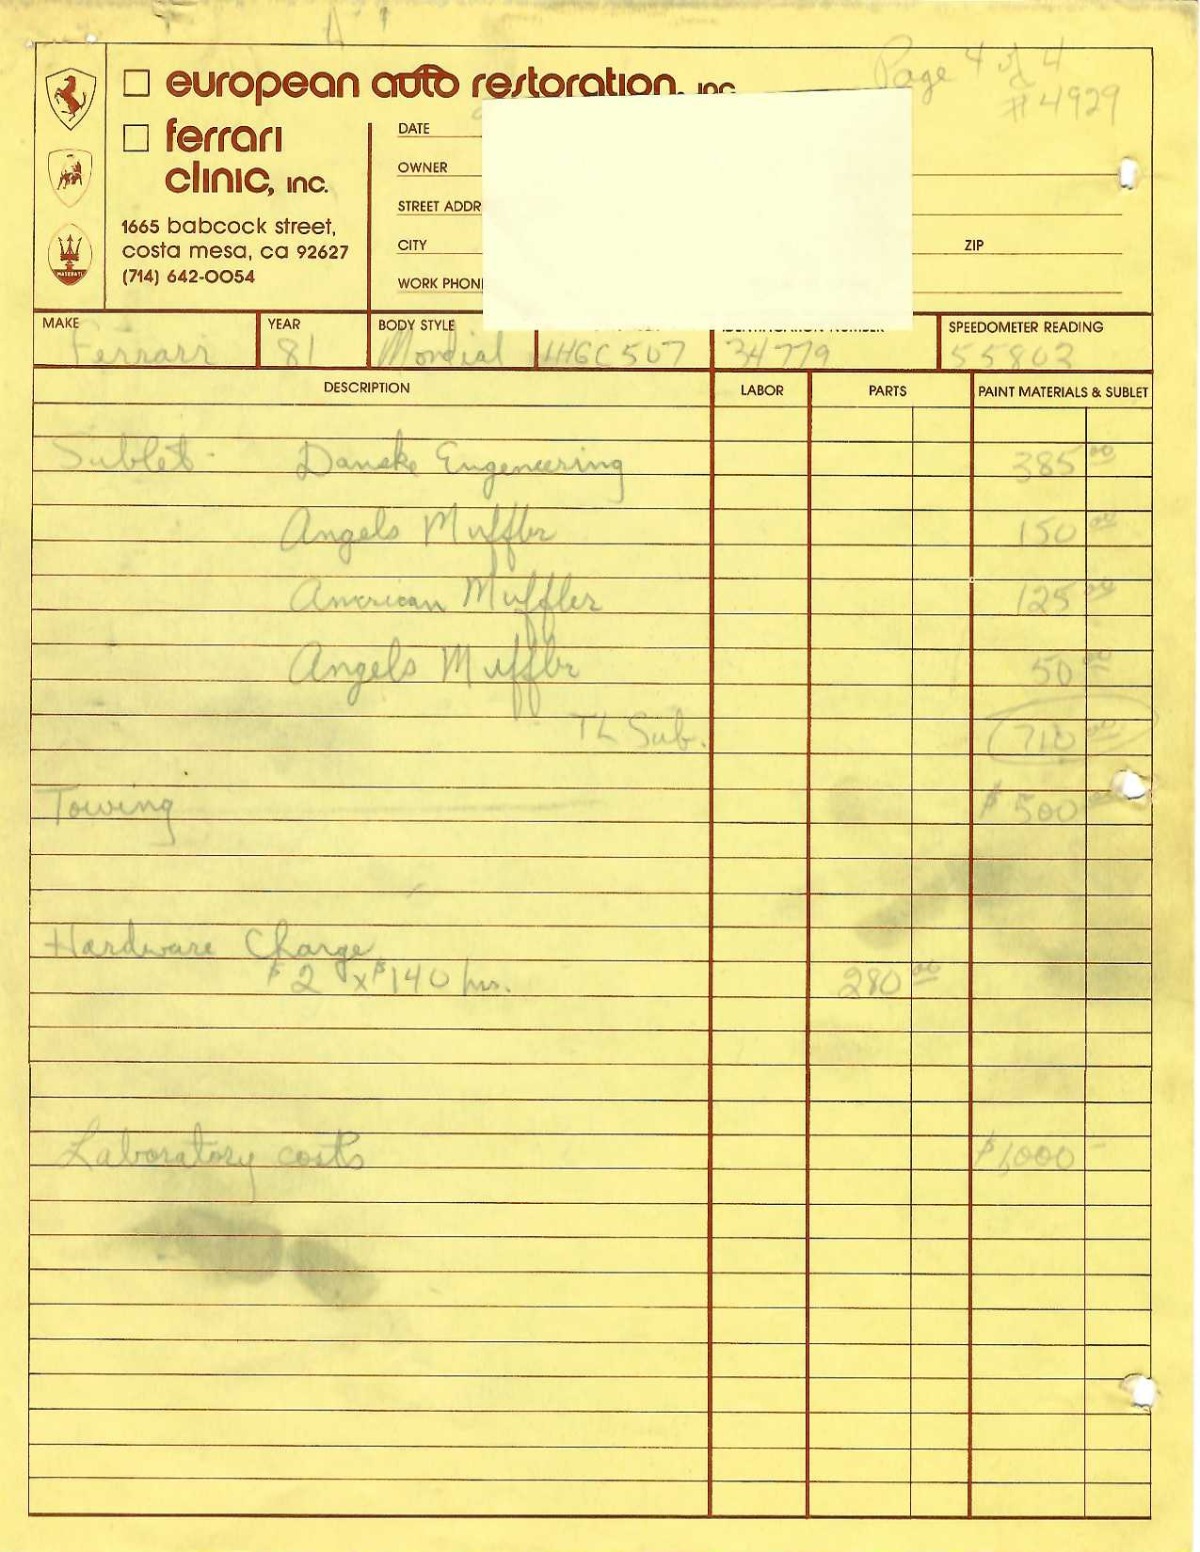 Page 4 of 4
european auto restoration, inc.
#4929
ferrari
clinic, inc.
1665 babcock street,
costa mesa, ca 92627
(714) 642-0054
DATE
OWNER
STREET ADDR
CITY ZIP
WORK PHON
MASERATI
MAKE YEAR BODY STYLE IDENTIFICATION NUMBER SPEEDOMETER READING
Ferrari 81 Mondial 1HGC507 34779 55802
DESCRIPTION LABOR PARTS PAINT MATERIALS & SUBLET
Sublet - Danske Engeneering 385 00
Angels Muffler 150 00
American Muffler 125 00
Angels Muffler 50 00
TL Sub. 710 00
Towing $ 500 00
Hardware Charge
$2 x $140 hrs. 280 00
Laboratory costs $1,000 -